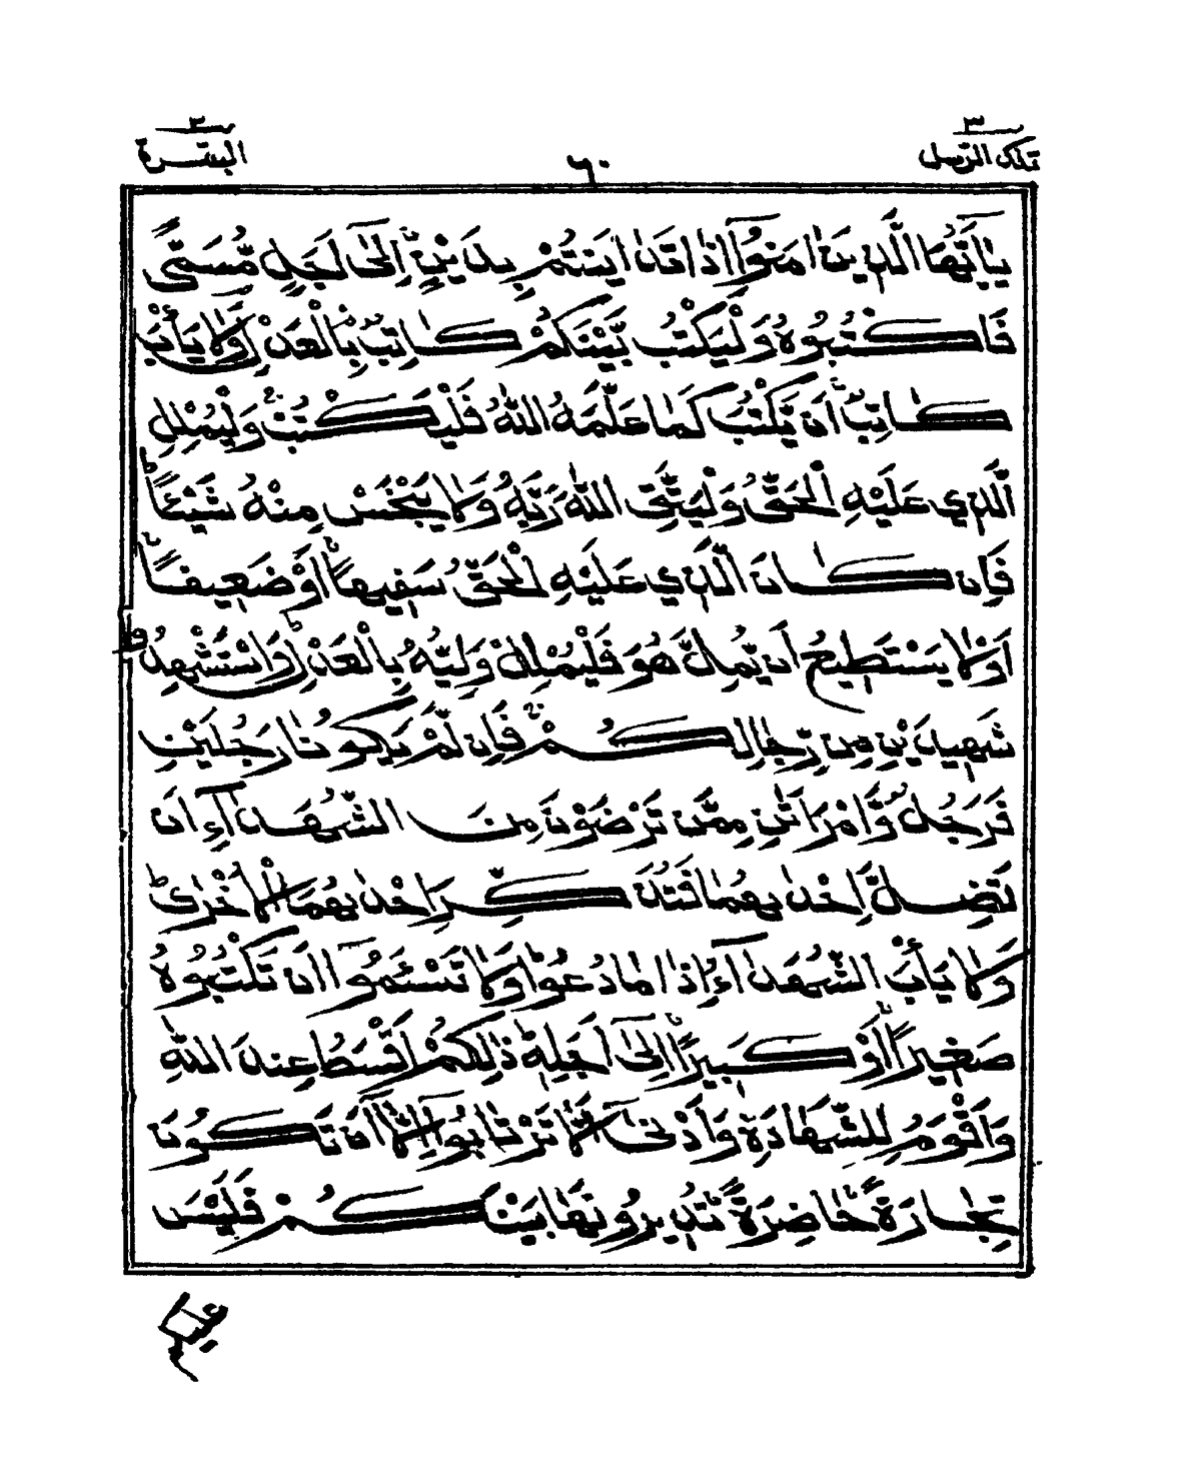 تلك الرسل ٣
٦٠
البقرة ٢
يٰٓاَيُّهَا الَّذِيْنَ اٰمَنُوْٓا اِذَا تَدَايَنْتُمْ بِدَيْنٍ اِلٰٓى اَجَلٍ مُّسَمًّى
فَاكْتُبُوْهُ وَلْيَكْتُبْ بَّيْنَكُمْ كَاتِبٌۢ بِالْعَدْلِ وَلَا يَأْبَ
كَاتِبٌ اَنْ يَّكْتُبَ كَمَا عَلَّمَهُ اللّٰهُ فَلْيَكْتُبْ وَلْيُمْلِلِ
الَّذِيْ عَلَيْهِ الْحَقُّ وَلْيَتَّقِ اللّٰهَ رَبَّهٗ وَلَا يَبْخَسْ مِنْهُ شَيْئًا
فَاِنْ كَانَ الَّذِيْ عَلَيْهِ الْحَقُّ سَفِيْهًا اَوْ ضَعِيْفًا
اَوْ لَا يَسْتَطِيْعُ اَنْ يُّمِلَّ هُوَ فَلْيُمْلِلْ وَلِيُّهٗ بِالْعَدْلِ وَاسْتَشْهِدُوْا
شَهِيْدَيْنِ مِنْ رِّجَالِكُمْ فَاِنْ لَّمْ يَكُوْنَا رَجُلَيْنِ
فَرَجُلٌ وَّامْرَاَتٰنِ مِمَّنْ تَرْضَوْنَ مِنَ الشُّهَدَآءِ اَنْ
تَضِلَّ اِحْدٰىهُمَا فَتُذَكِّرَ اِحْدٰىهُمَا الْاُخْرٰى
وَلَا يَأْبَ الشُّهَدَآءُ اِذَا مَا دُعُوْا وَلَا تَسْئَمُوْٓا اَنْ تَكْتُبُوْهُ
صَغِيْرًا اَوْ كَبِيْرًا اِلٰٓى اَجَلِهٖ ذٰلِكُمْ اَقْسَطُ عِنْدَ اللّٰهِ
وَاَقْوَمُ لِلشَّهَادَةِ وَاَدْنٰٓى اَلَّا تَرْتَابُوْٓا اِلَّآ اَنْ تَكُوْنَ
تِجَارَةً حَاضِرَةً تُدِيْرُوْنَهَا بَيْنَكُمْ فَلَيْسَ